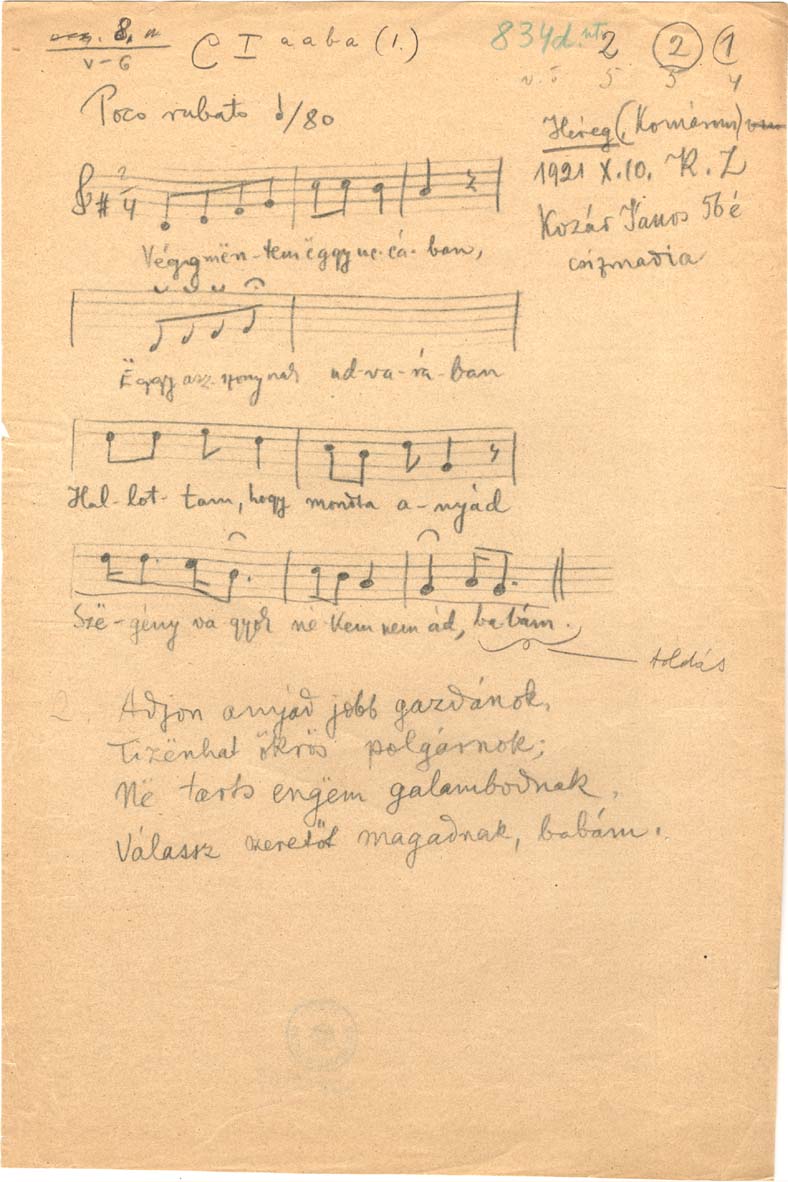 8.
V-6
C I a a b a (1.)
834d. 2 2 1
5 5 4
Poco rubato /80
Héreg (Komárom)
1921 X. 10. K. Z
Kozár János 56 é
csizmadia
2/4
Végigmën-tem ëggy uc-cá-ban,
Ëggy asz-szonynak ud-va-rá-ban
Hal-lot-tam, hogy mondta a-nyád
Szë-gény va gyok në-kem nem ád, ba-bám.
toldás
2. Adjon anyád jobb gazdánok,
Tizënhat ökrös polgárnok;
Në tarts engëm galambodnak,
Válassz szeretőt magadnak, babám.